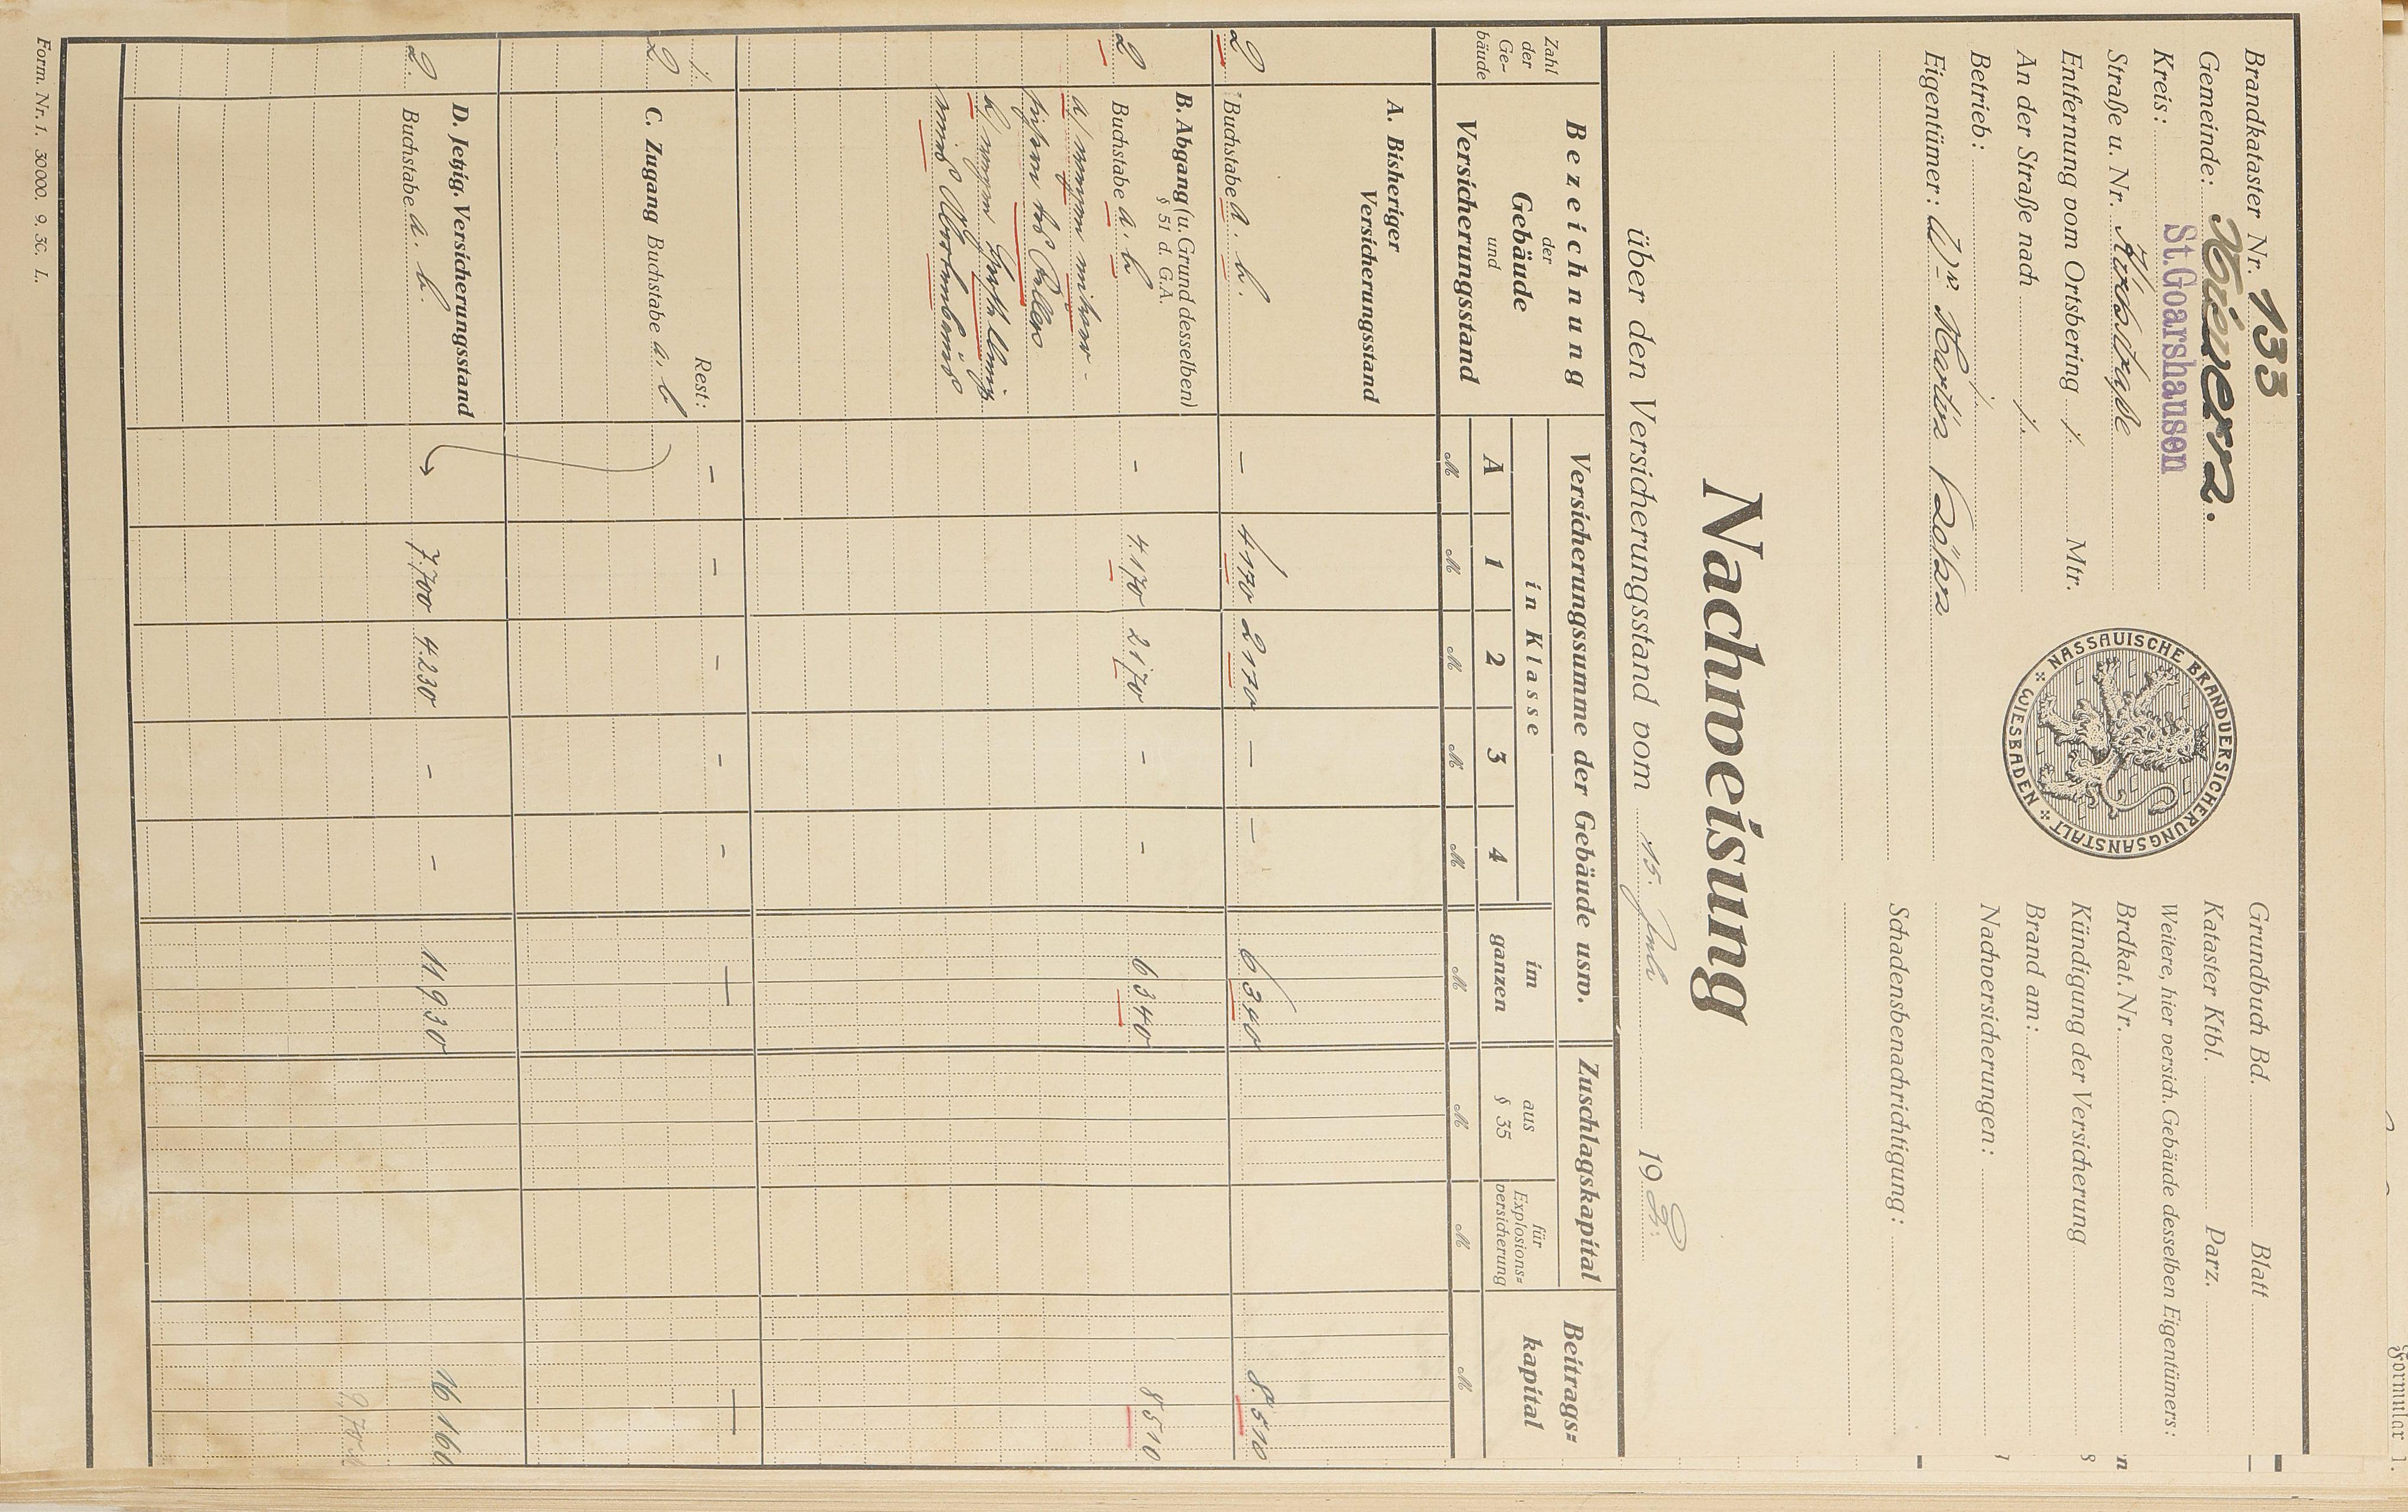 Brandkataster Nr. 133
Gemeinde: Weyer.
Kreis: St. Goarshausen
Straße u. Nr. Kirchstraße
Entfernung vom Ortsbering ./. Mtr.
An der Straße nach ./.
Betrieb: ./.
Eigentümer: Martin
NASSAUISCHE BRANDVERSICHERUNGSANSTALT
WIESBADEN
Grundbuch Bd. Blatt
Kataster Ktbl. Parz.
Weitere, hier versich. Gebäude desselben Eigentümers:
Brdkat. Nr.
Kündigung der Versicherung
Brand am:
Nachversicherungen:
Schadensbenachrichtigung:
Nachweisung
über den Versicherungsstand vom 15. Juli 19
Zahl der Ge- bäude
Bezeichnung der Gebäude und Versicherungsstand
Versicherungssumme der Gebäude usw.
in Klasse
A 1 2 3 4
im ganzen
Zuschlagskapital
aus § 35
für Explosions- versicherung
Beitrags- kapital
M M M M M M M M M
A. Bisheriger
Versicherungsstand
2 Buchstabe a. b. — 4170 2170 — — 6340 8510
B. Abgang (u. Grund desselben)
§ 51 d. G.A.
2 Buchstabe a. b – 4170 2170 – – 6340 8510
a/ wegen
des Kellers
b/ wegen
./. Rest: – – – – – — —
2 C. Zugang Buchstabe a. b
D. Jetzig. Versicherungsstand
2. Buchstabe a. b. 7.700 4.230 – – 11930 16160
Form. Nr. 1. 30000. 9. 30. L.
Formular 1.